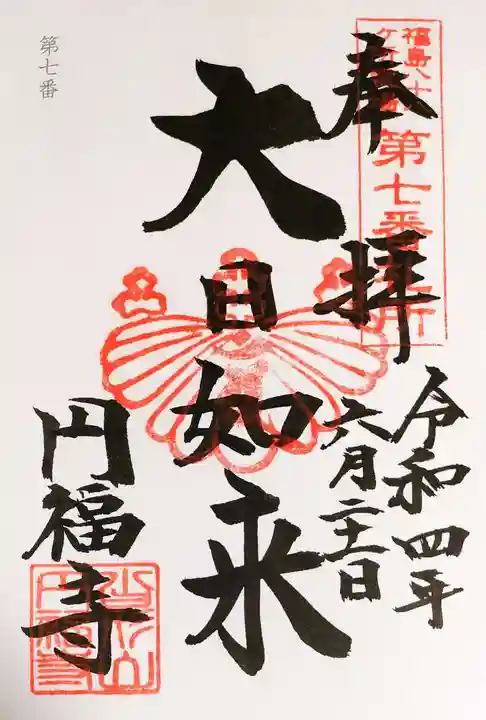 福島八十八
ヶ所 第七番霊場
奉拝
令和四年
六月二十二日
大日如来
円福寺
第七番